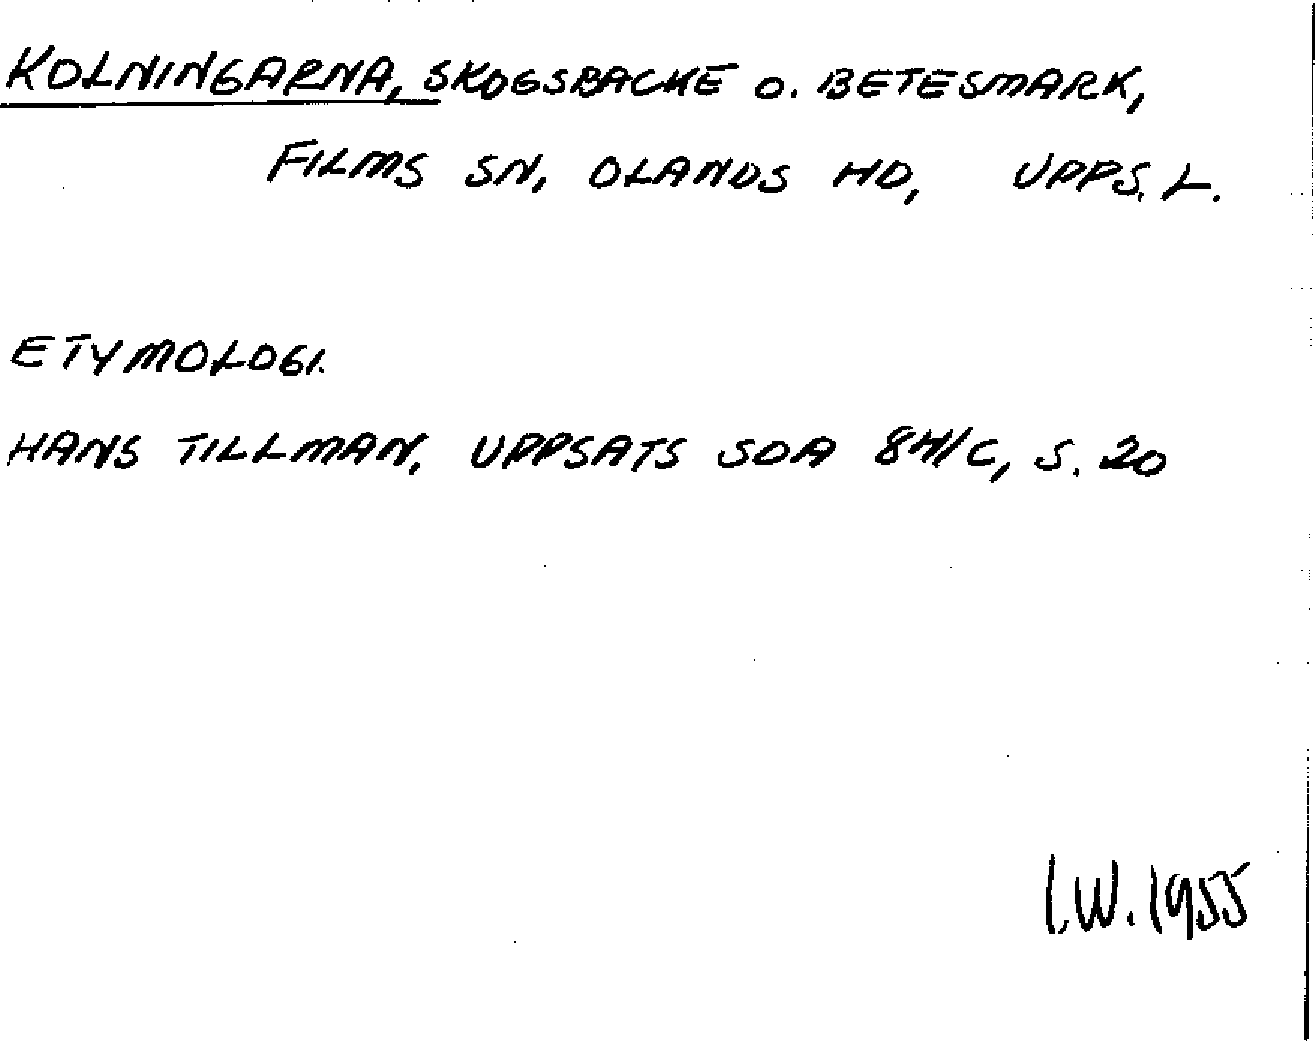 KOLNINGARNA, SKOGSBACKE O. BETESMARK,
FILMS SN, OLANDS HD, UPPS. L.
ETYMOLOGI.
HANS TILLMAN, UPPSATS SOA S. 20
I.W. 1955